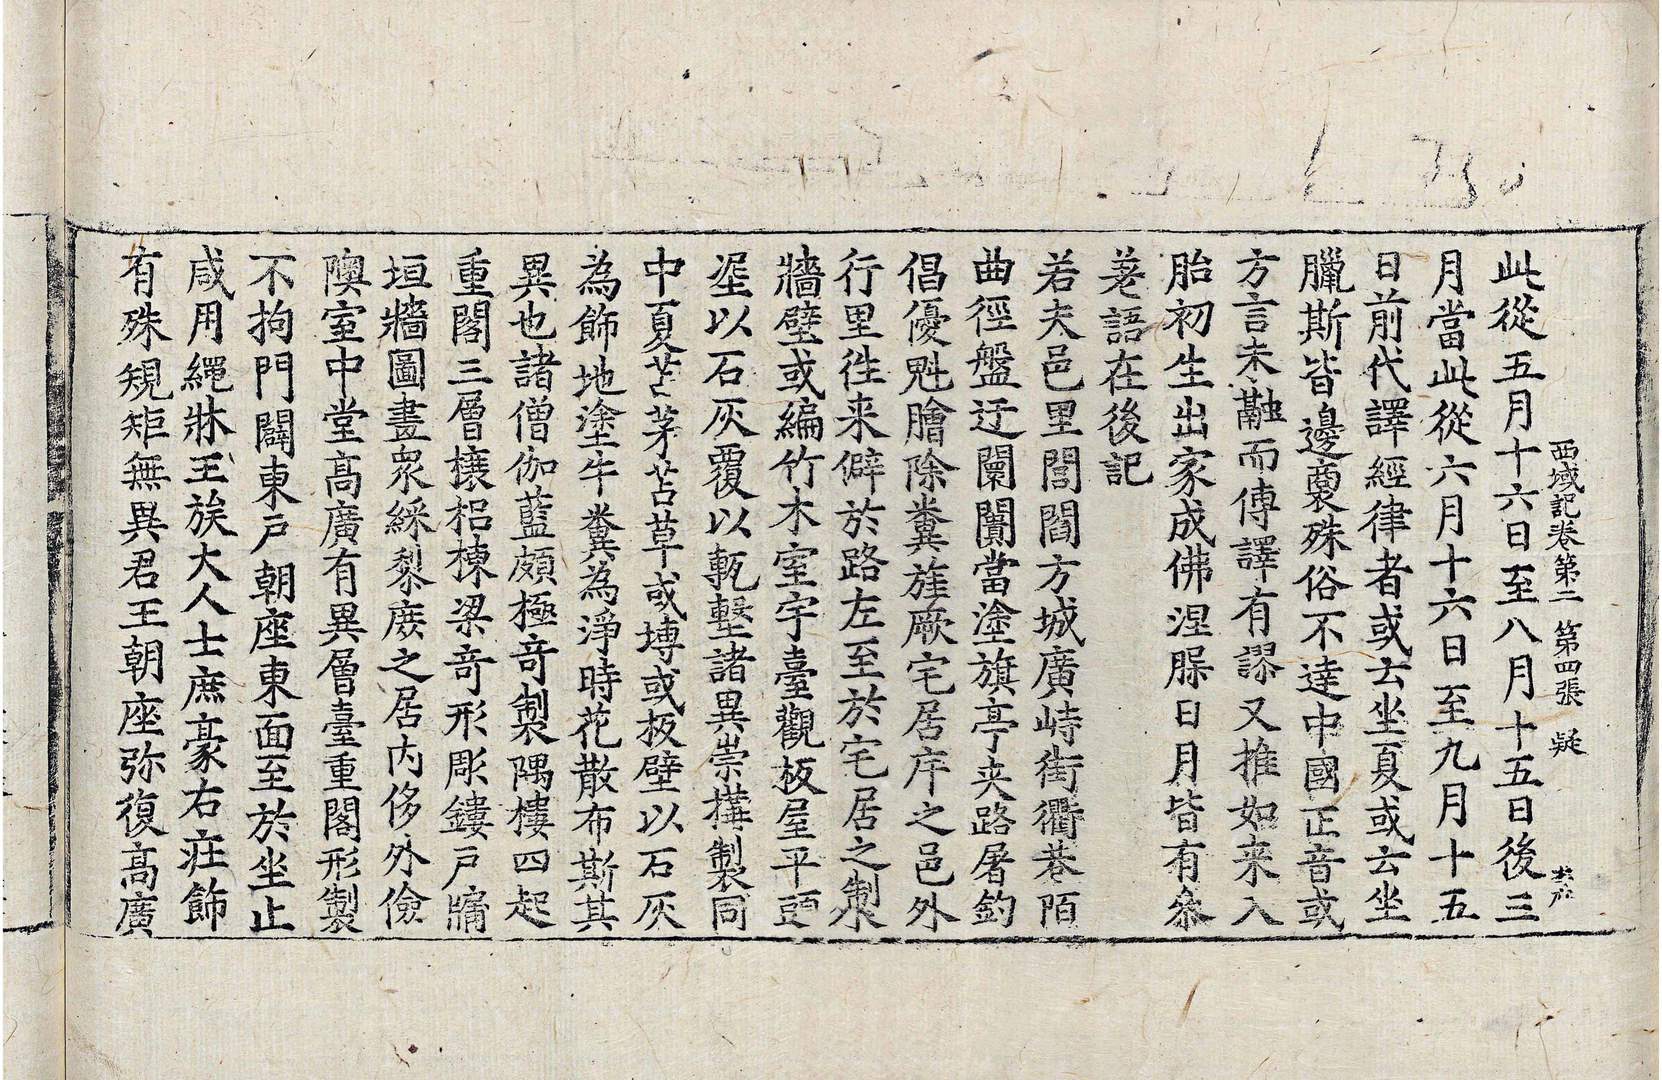 西域記卷第二 第四張 疑
此從五月十六日至八月十五日後三
月當此從六月十六日至九月十五
日前代譯經律者或云坐夏或云坐
臘斯皆邊裔殊俗不達中國正音或
方言未融而傳譯有謬又推如来入
胎初生出家成佛涅槃日月皆有叅
差語在後記
若夫邑里閭閻方城廣峙街衢巷陌
曲徑盤迂闤闠當塗旗亭夾路屠釣
倡優魁膾除糞旌厥宅居斥之邑外
行里徃来僻於路左至於宅居之製
牆壁或編竹木室宇臺觀板屋平頭
埿以石灰覆以甎墼諸異崇搆製同
中夏苫茅苫草或塼或板壁以石灰
為飾地塗牛糞為淨時花散布斯其
異也諸僧伽藍頗極竒製隅樓四起
重閣三層榱梠棟梁竒形彫鏤戶牖
垣牆圖畫衆綵黎庶之居内侈外儉
隩室中堂髙廣有異層臺重閣形製
不拘門闢東戶朝座東面至於坐止
咸用繩牀王族大人士庶豪右莊飾
有殊規矩無異君王朝座弥復髙廣